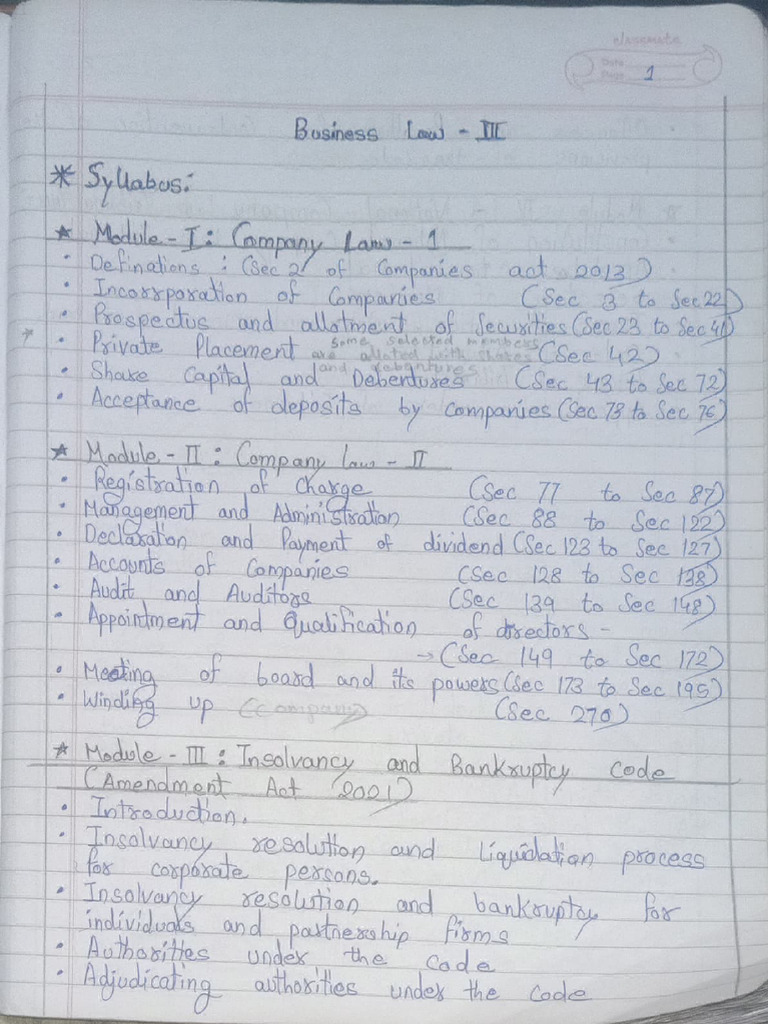 classmate
Date
Page 1
Business Law - III
* Syllabus:
★ Module - I : Company Law - 1
• Definations : (Sec 2 of Companies act 2013)
• Incorrporation of Companies (Sec 3 to Sec 22)
• Prospectus and allotment of Securities (Sec 23 to Sec 41)
some selected members
• Private Placement (Sec 42)
are alloted with shares
and debentures
• Share Capital and Debentures (Sec 43 to Sec 72)
• Acceptance of deposits by companies (Sec 73 to Sec 76)
★ Module - II : Company law - II
• Registration of Charge (Sec 77 to Sec 87)
• Management and Administration (Sec 88 to Sec 122)
• Declaration and Payment of dividend (Sec 123 to Sec 127)
• Accounts of Companies (Sec 128 to Sec 138)
• Audit and Auditors (Sec 139 to Sec 148)
• Appointment and Qualification of directors -
→ (Sec 149 to Sec 172)
• Meeting of board and its powers (Sec 173 to Sec 195)
• Winding up (Company) (Sec 270)
★ Module - III : Insolvancy and Bankruptcy Code
(Amendment Act 2021)
• Introduction.
• Insolvancy resolution and liquidation process
for corporate persons.
• Insolvancy resolution and bankruptcy for
individuals and partnership firms
• Authorities under the code
• Adjudicating authorities under the code